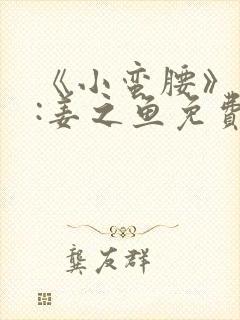 《小蛮腰》
:姜之鱼免費
龔友群